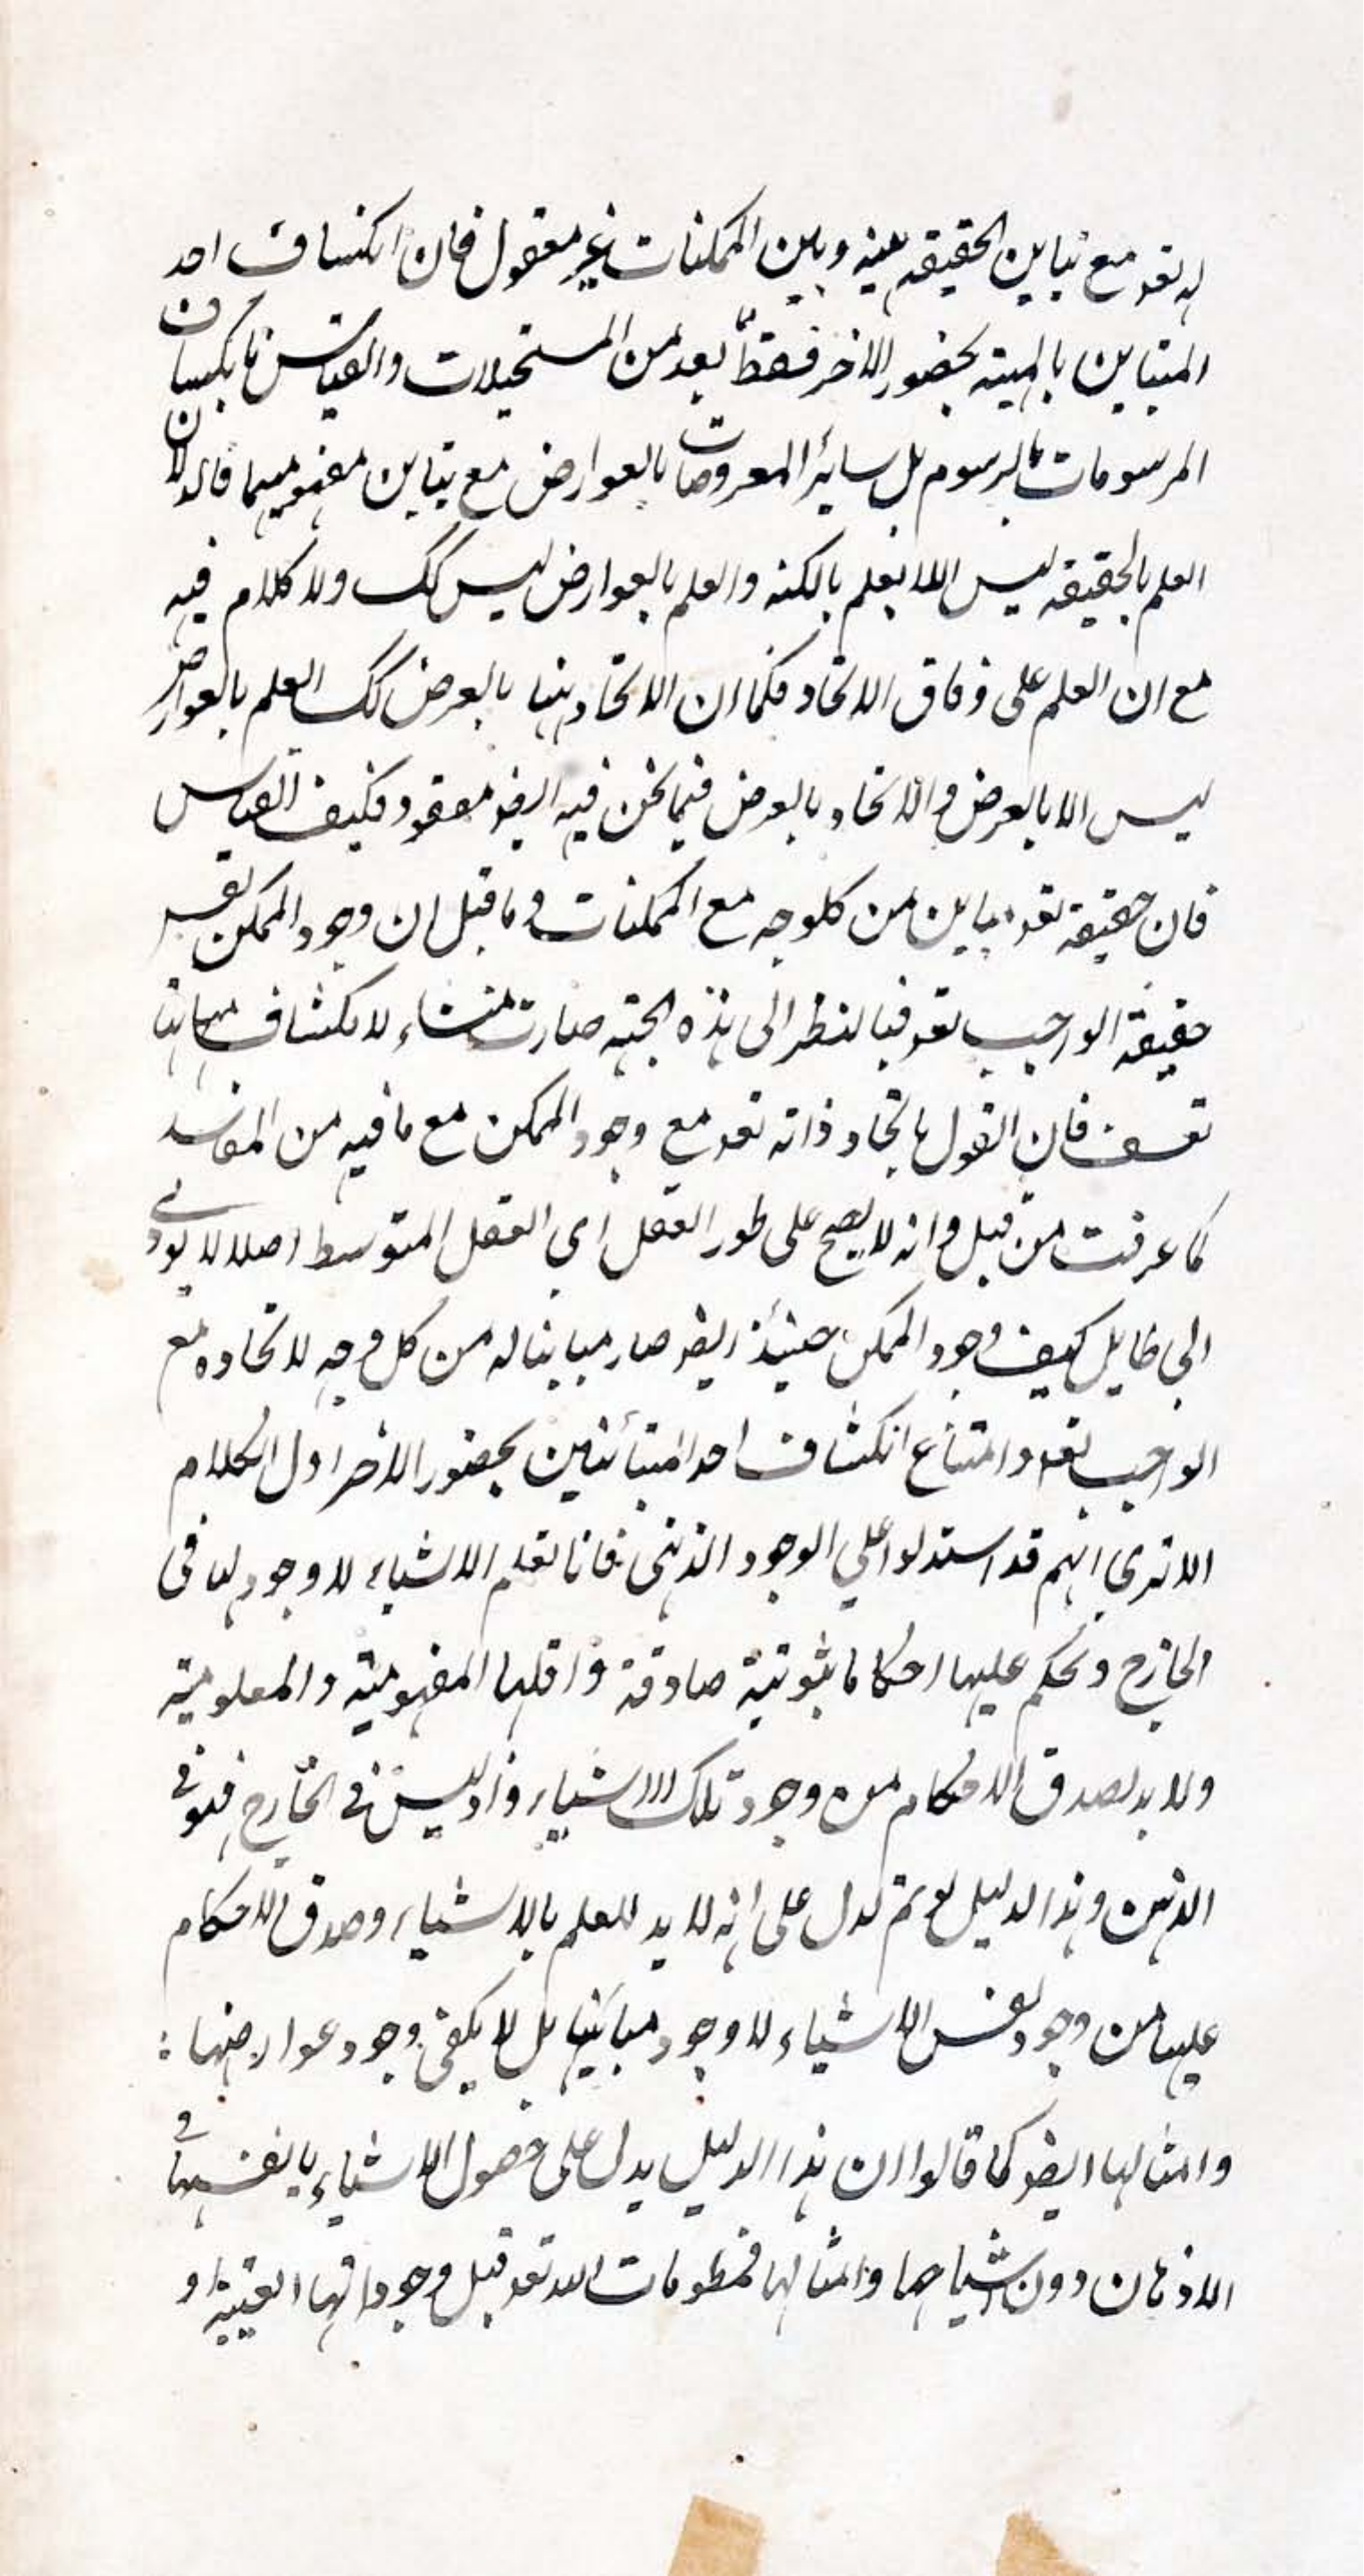 له تعو مع تباين الحقيقة بينه وبين الممكنات غير معقول فان انكشاف احد
المتباينين بالمهية بحضور الاخر فقط يعد من المستحيلات والقياس بانكشاف
المرسومات بالرسوم بل ساير المعروضات بالعوارض مع تباين مفهوميهما فان
العلم بالحقيقة ليس الا العلم بالكنه والعلم بالعوارض ليس كك ولا كلام فيه
مع ان العلم على وفاق الاتحاد فكما ان الاتحاد بينها بالعرض كك العلم بالعوارض
ليس الا بالعرض والاتحاد بالعرض فيما نحن فيه ايضو مفقود فكيف القياس
فان حقيقة تعو مباين من كلوجه مع الممكنات وما قيل ان وجود الممكن نفس
حقيقة الواجب تعو فبالنظر الى هذه الجهة صارت منشاء لانكشاف مباينها
تعسف فان القول باتحاد ذاته تعو مع وجود الممكن مع ما فيه من المفاسد
كما عرفت من قبل وانه لا يصح على طور العقل اي العقل المتوسط اصلا لا يودي
الى طايل كيف وجود الممكن حينئذ ايضو صار مباينا له من كل وجه لاتحاده مع
الواجب تعو وامتناع انكشاف احد المتبائنين بحضور الاخر اول الكلام
الا تري انهم قد استدلوا علي الوجود الذهنى فانا نعلم الاشياء لا وجود لها في
الخارج ونحكم عليها احكاما ثبوتية صادقة واقلها المفهومية والمعلومية
ولا بد لصدق الاحكام من وجود تلك الاشياء واذ ليس في الخارج فهو في
الذهن وهذا الدليل لو تم لدل على انه لا بد للعلم بالاشياء وصدق الاحكام
عليها من وجود نفس الاشياء لا وجود مباينها بل لا يكفي وجود عوارضها :
وامثالها ايضو كما قالوا ان هذا الدليل يدل على حصول الاشياء بانفسها في
الاذهان دون اشباحها وامثالها فمعلومات الله تعو قبل وجوداتها العينية و